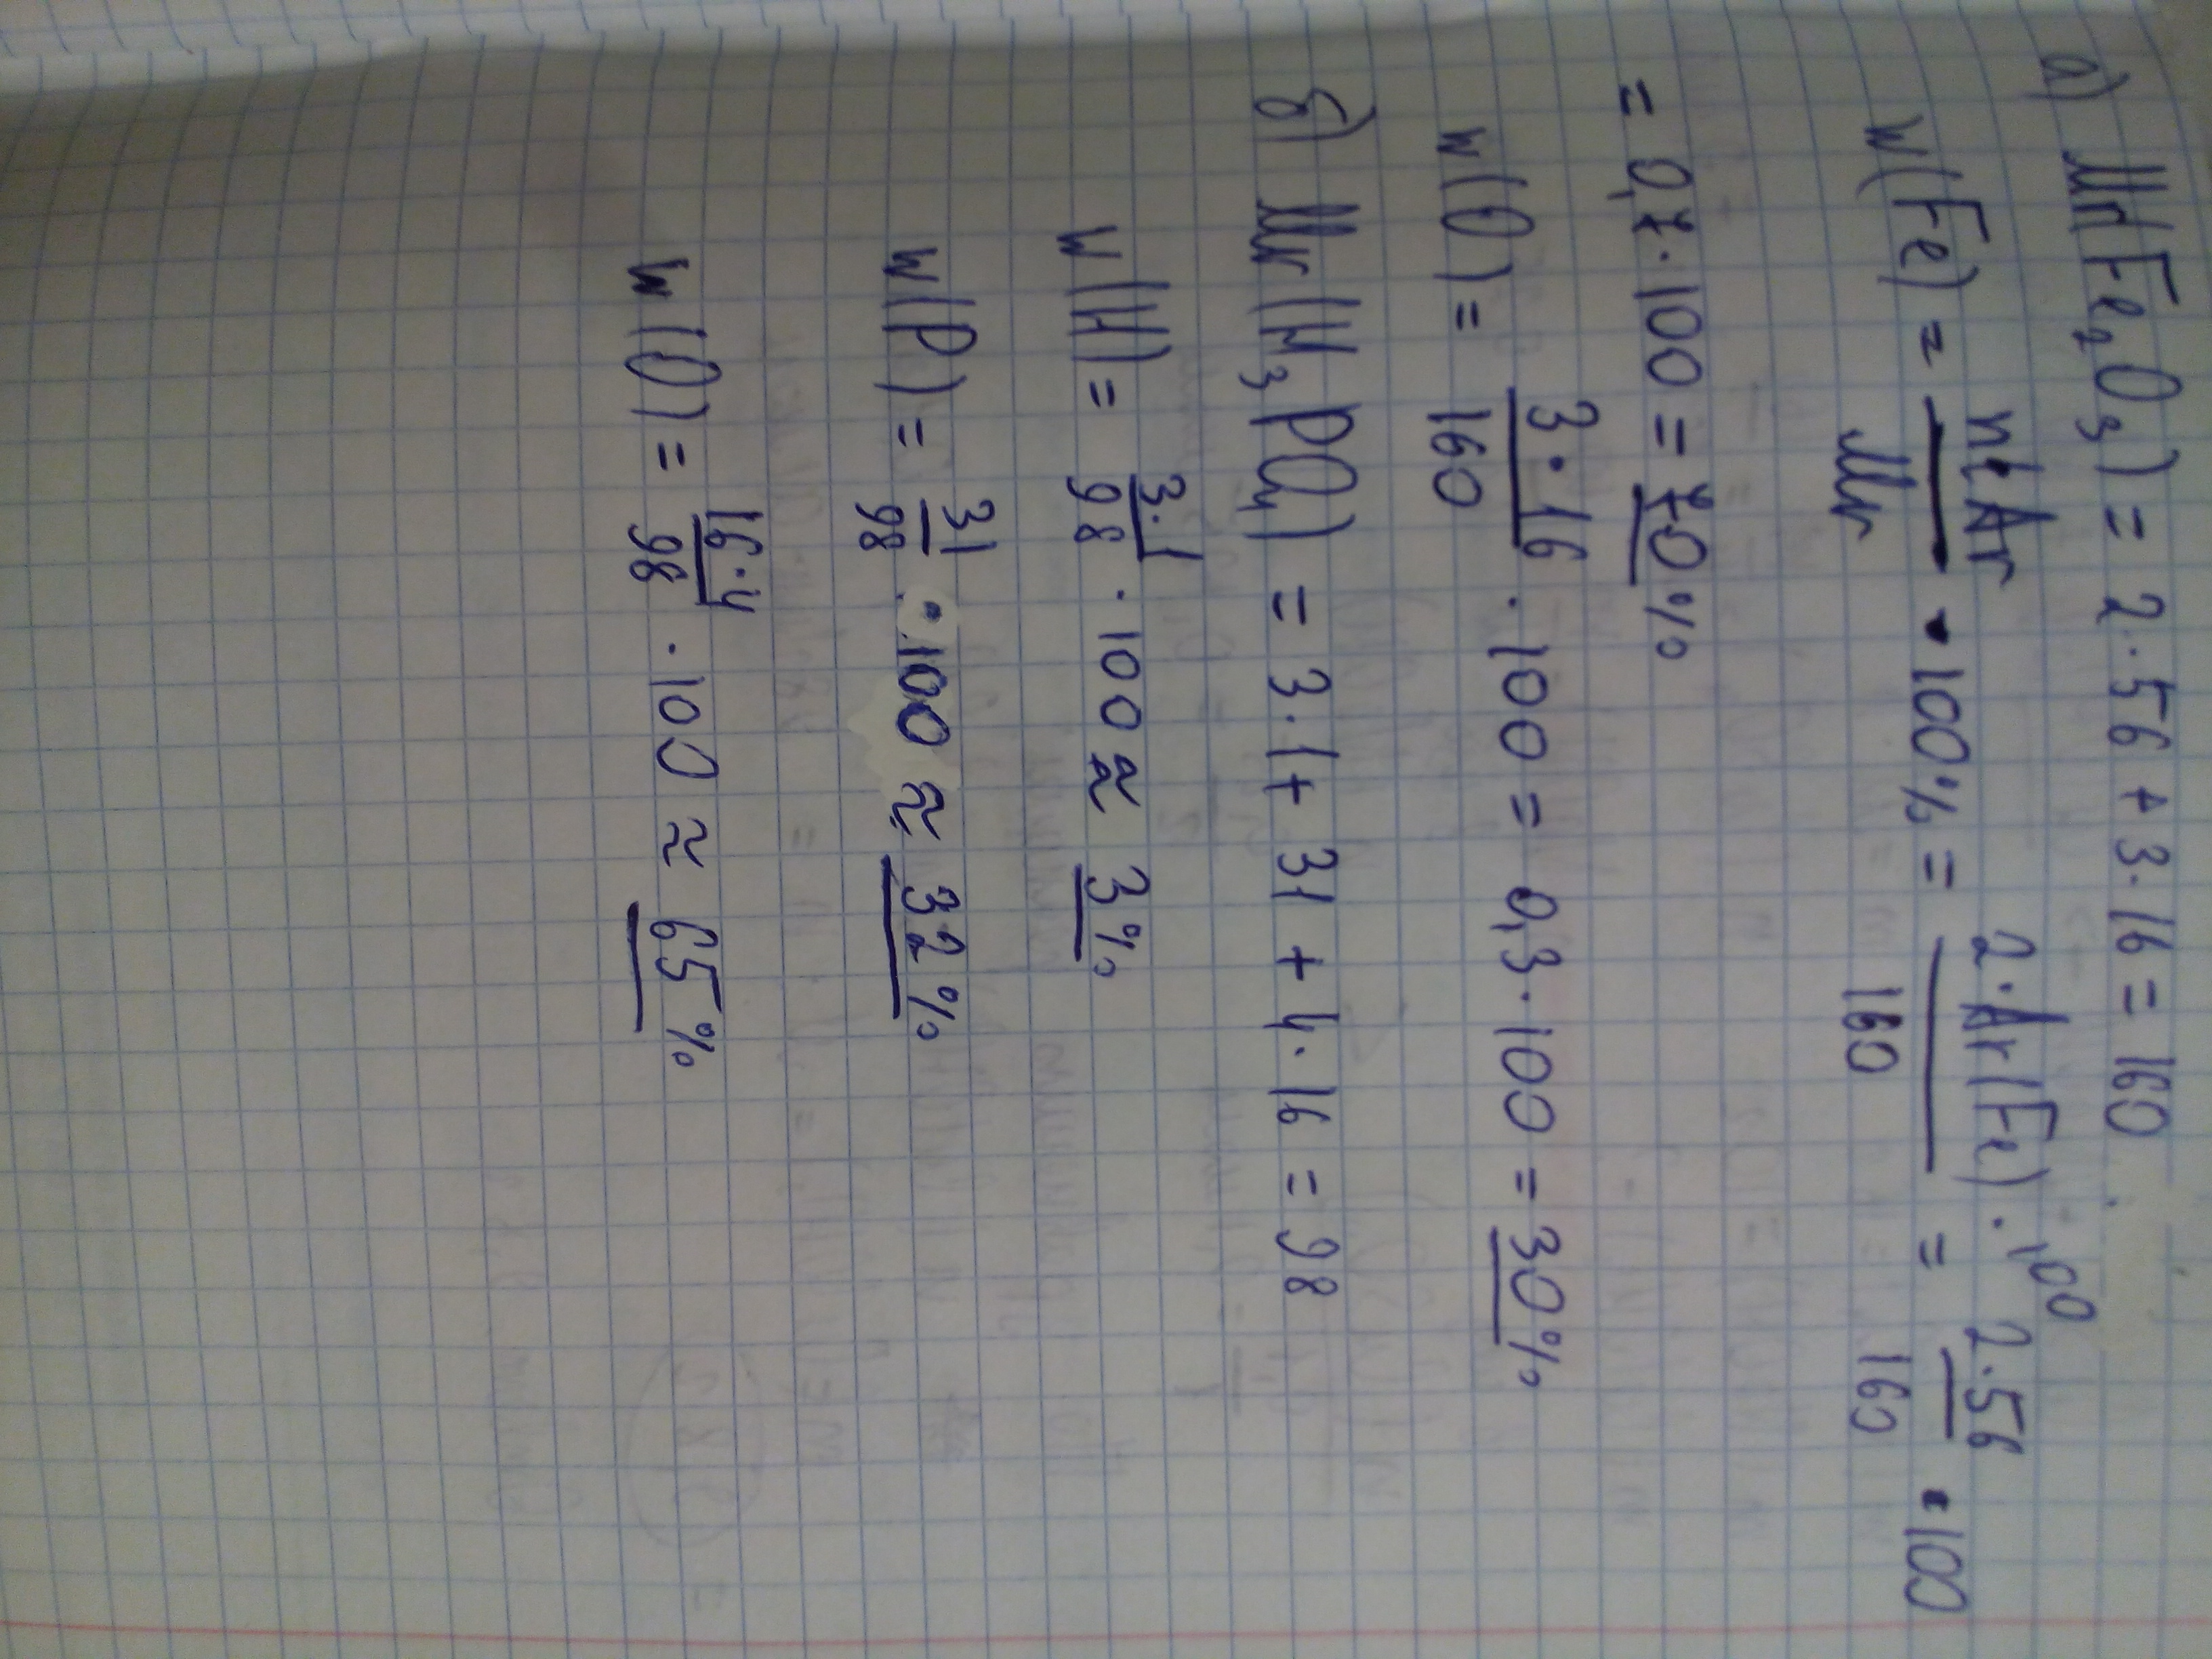 а) Mr(Fe₂O₃) = 2·56 + 3·16 = 160
w(Fe) = n·Ar/Mr · 100% = 2·Ar(Fe)·100/160 = 2·56/160 · 100
= 0,7·100 = 70%
w(O) = 3·16/160 · 100 = 0,3·100 = 30%
б) Mr(H₃PO₄) = 3·1 + 31 + 4·16 = 98
w(H) = 3·1/98 · 100 ≈ 3%
w(P) = 31/98 · 100 ≈ 32%
w(O) = 16·4/98 · 100 ≈ 65%